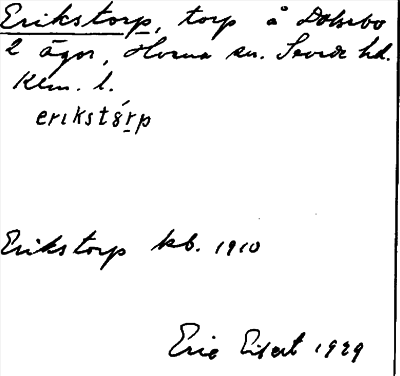 Erikstorp, torp å Dalsebo
2 ägor, Horna sn. Sevede hd.
Klm. l.
erikstórp
Erikstorp kb. 1910
Eric Elfert 1929